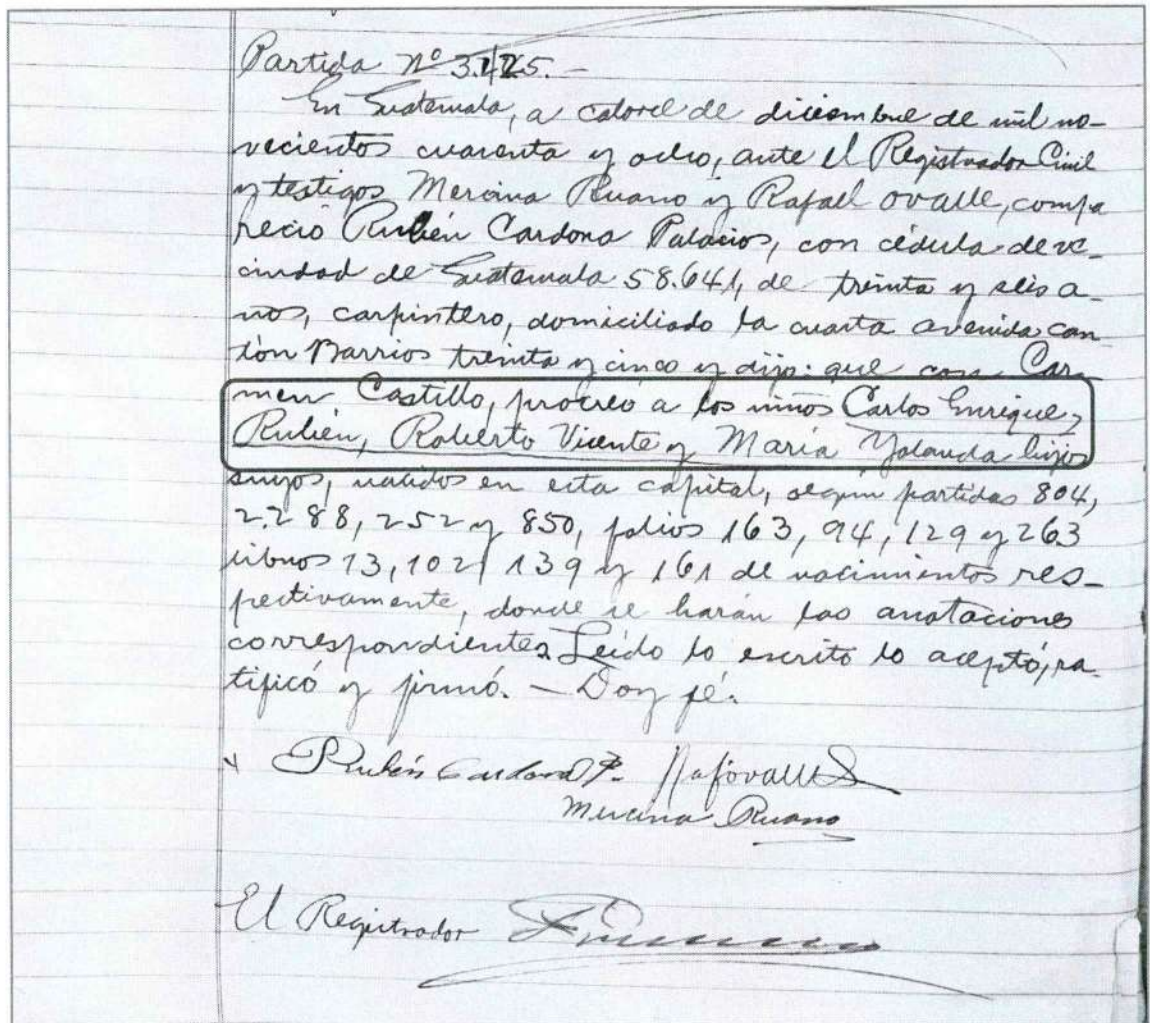 Partida Nº 3.125.-
En Guatemala, a catorce de diciembre de mil no-
vecientos cuarenta y ocho, ante el Registrador Civil
y testigos Mercina Ruano y Rafael Ovalle, compa
reció Rubén Cardona Palacios, con cédula de ve-
cindad de Guatemala 58.641, de treinta y seis a-
ños, carpintero, domiciliado la cuarta avenida can-
tón Barrios treinta y cinco y dijo: que con Car-
men Castillo, procreó a los niños Carlos Enrique,
Rubén, Roberto Vicente y María Yolanda hijos
suyos, nacidos en esta capital, según partidas 804,
2.288, 252 y 850, folios 163, 94, 129 y 263
libros 73, 102, 139 y 161 de nacimientos res-
pectivamente, donde se harán las anotaciones
correspondientes. Leído lo escrito lo aceptó, ra-
tificó y firmó. — Doy fé.
Rubén Cardona P. Rafovalle
Mercina Ruano
El Registrador